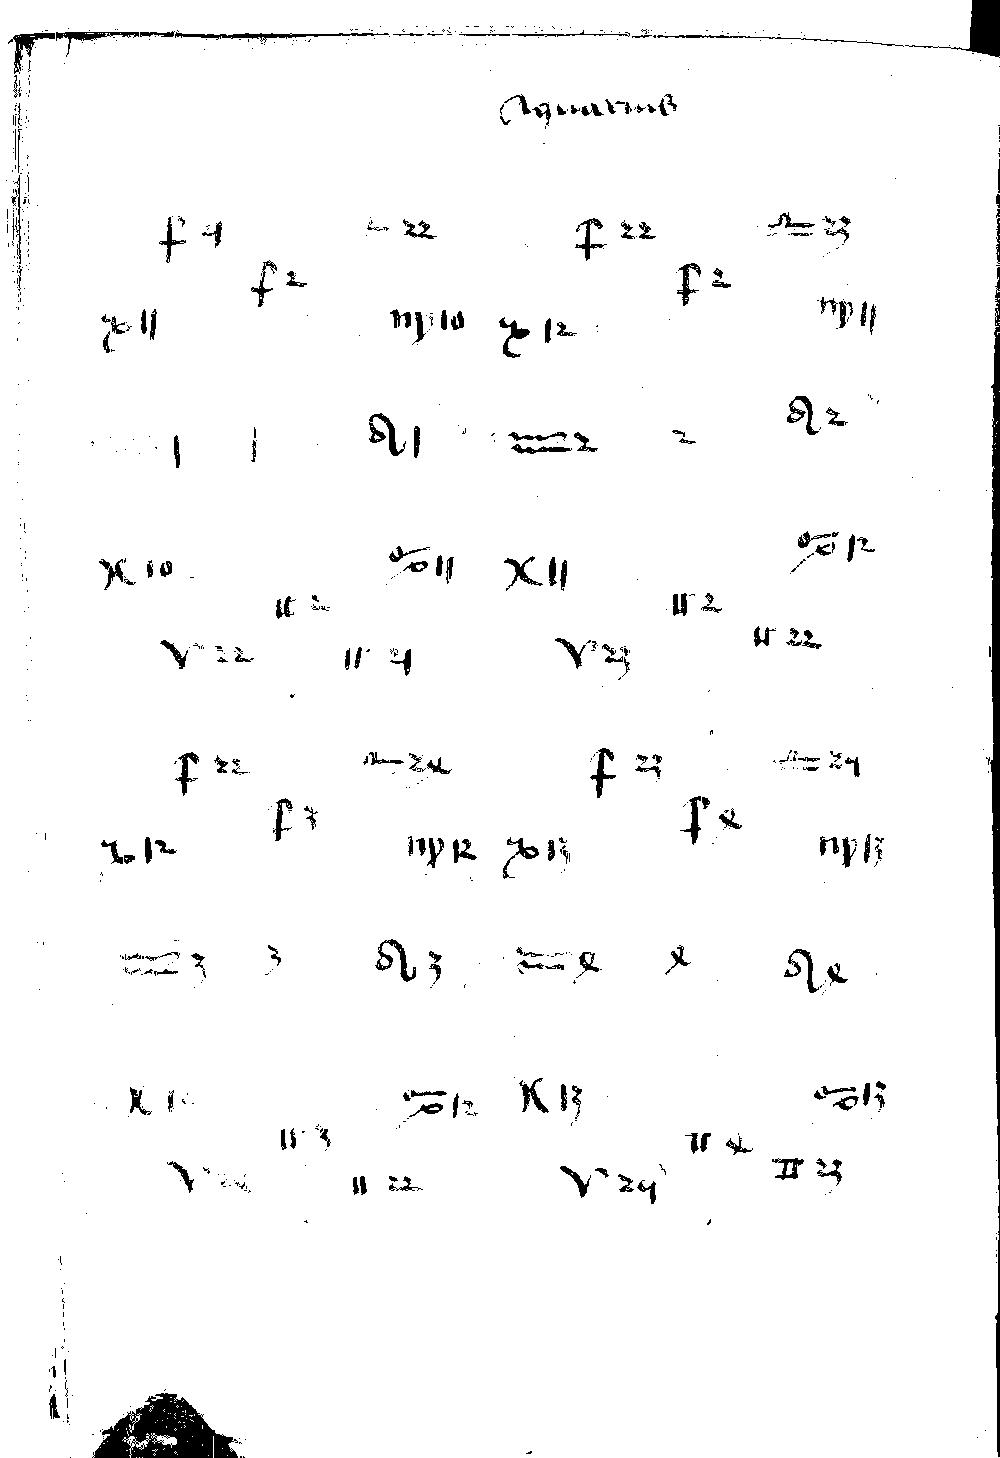 Aquarius
♐ 21 ♎ 22 ♐ 22 ♎ 23
♐ 2 ♐ 2
♑ 11 ♍ 10 ♑ 12 ♍ 11
1 1 ♌ 1 ♒ 2 2 ♌ 2
♓ 10 ♋ 11 ♓ 11 ♋ 12
♊ 2 ♊ 2
♈ 22 ♊ 21 ♈ 23 ♊ 22
♐ 22 ♎ 24 ♐ 23 ♎ 24
♐ 3 ♐ 4
♑ 12 ♍ 12 ♑ 13 ♍ 13
♒ 3 3 ♌ 3 ♒ 4 4 ♌ 4
♓ ♋ 12 ♓ 13 ♋ 13
♊ 3 ♊ 4
♈ ♊ 22 ♈ 24 ♊ 23